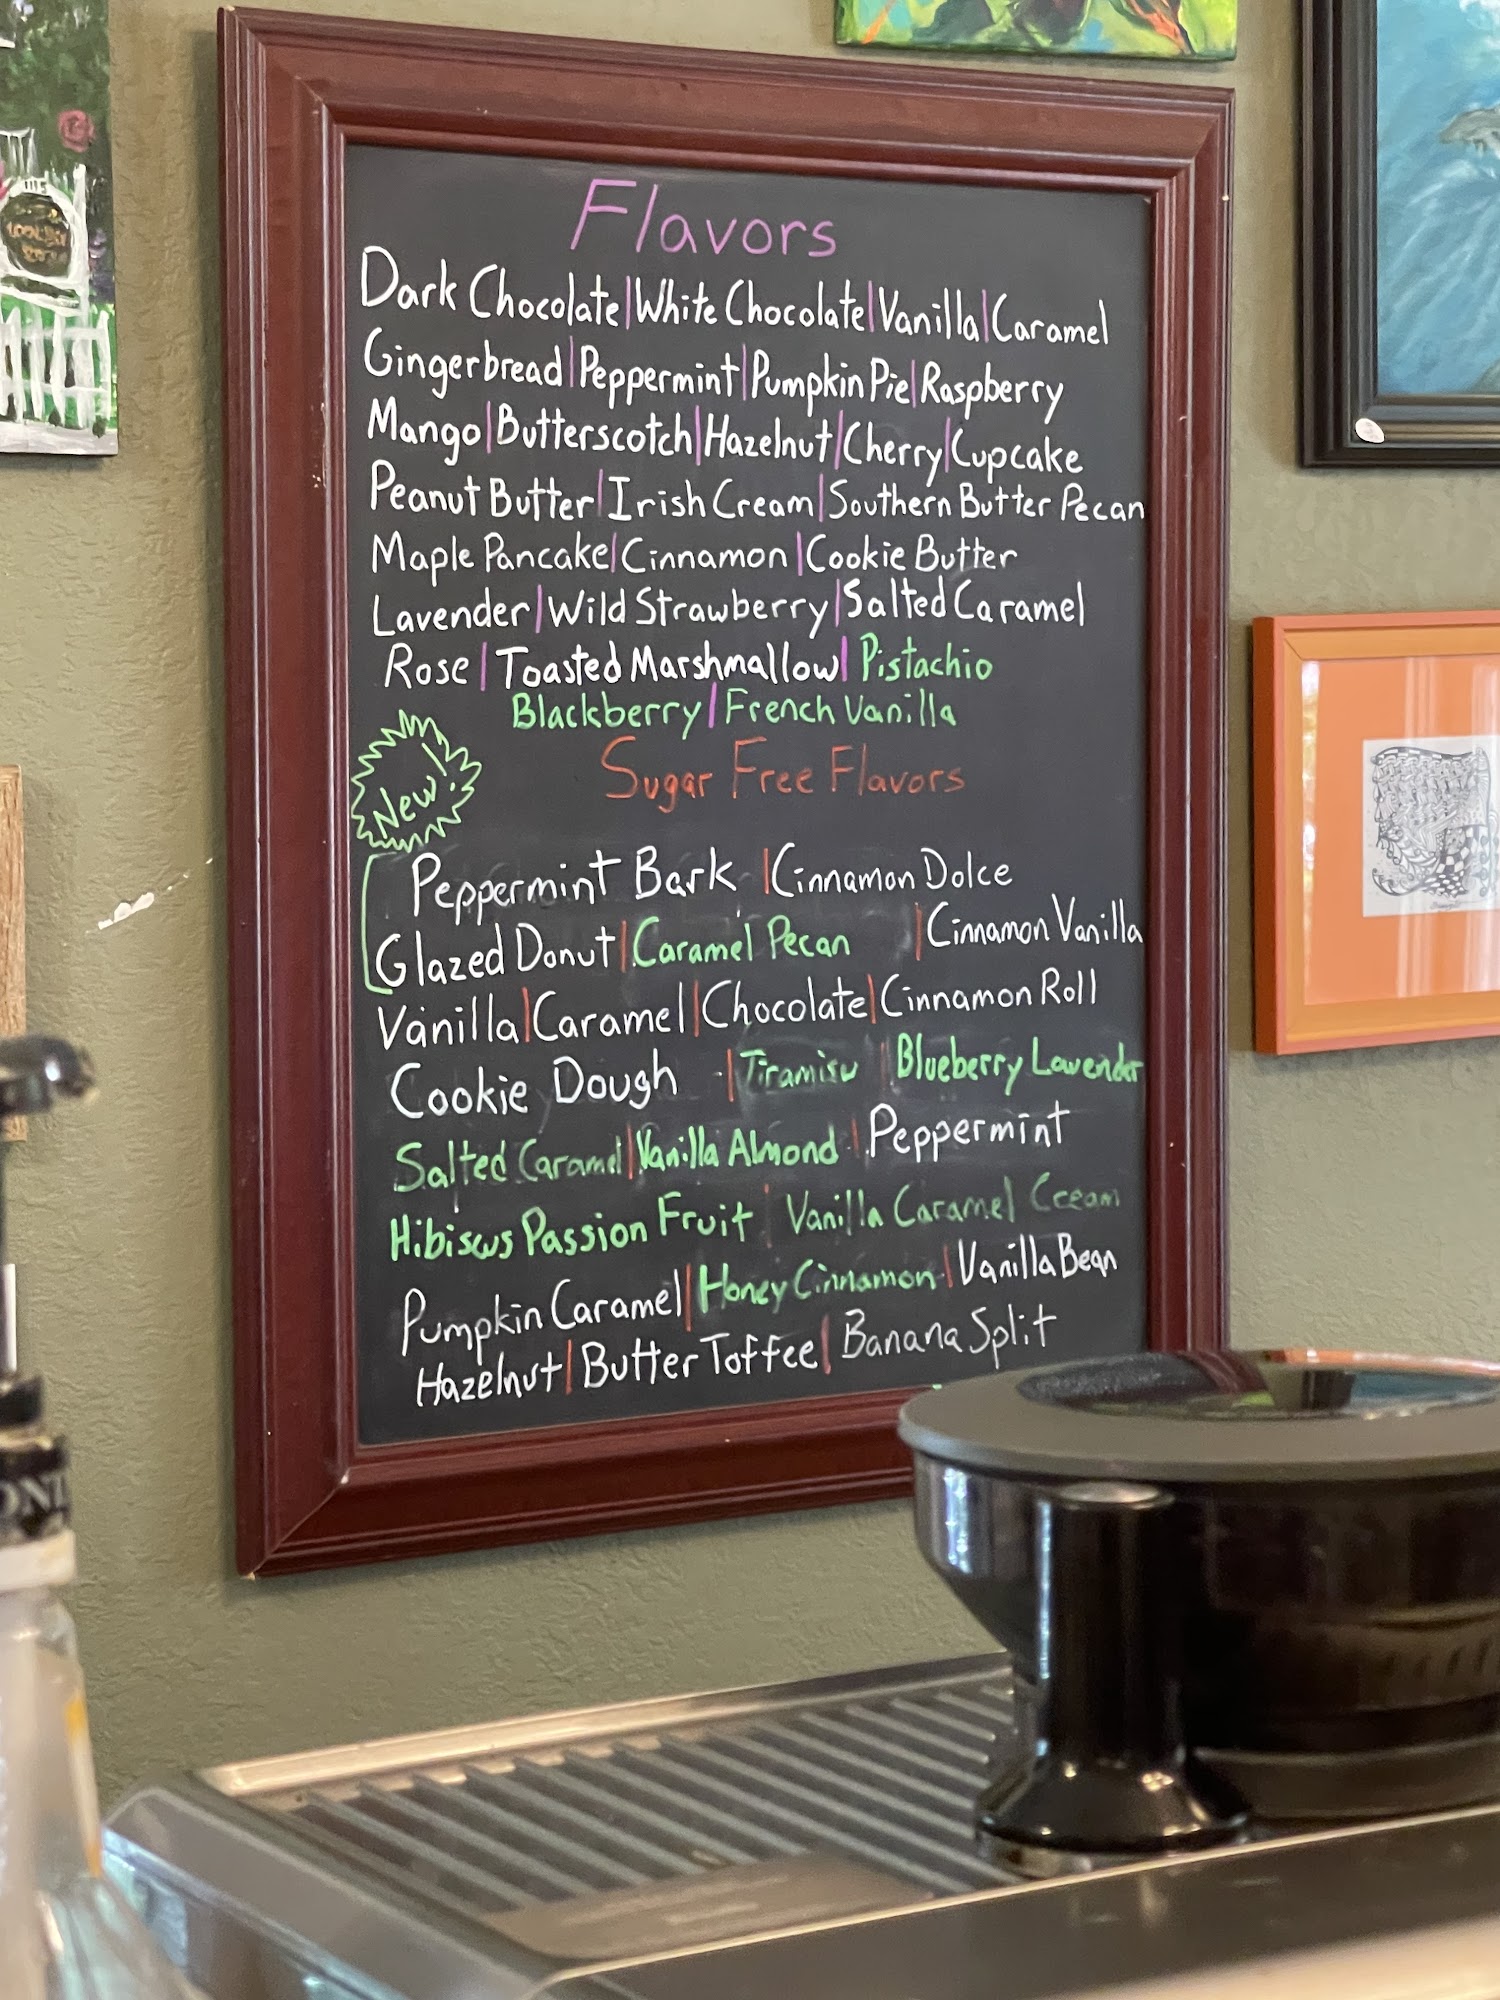 Flavors
Dark Chocolate|White Chocolate|Vanilla|Caramel
Gingerbread|Peppermint|Pumpkin Pie|Raspberry
Mango|Butterscotch|Hazelnut|Cherry|Cupcake
Peanut Butter|Irish Cream|Southern Butter Pecan
Maple Pancake|Cinnamon|Cookie Butter
Lavender|Wild Strawberry|Salted Caramel
Rose|Toasted Marshmallow|Pistachio
Blackberry|French Vanilla
New!
Sugar Free Flavors
Peppermint Bark|Cinnamon Dolce
Glazed Donut|Caramel Pecan|Cinnamon Vanilla
Vanilla|Caramel|Chocolate|Cinnamon Roll
Cookie Dough|Tiramisu|Blueberry Lavender
Salted Caramel|Vanilla Almond|Peppermint
Hibiscus Passion Fruit|Vanilla Caramel Cream
Pumpkin Caramel|Honey Cinnamon|Vanilla Bean
Hazelnut|Butter Toffee|Banana Split